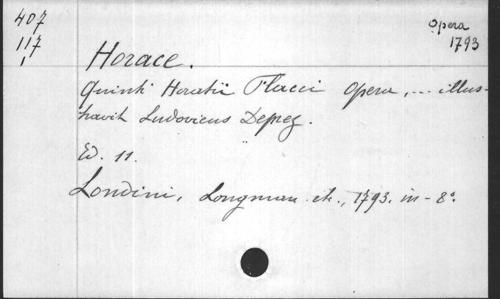 407
117
1
Opera
1793
Horace.
Quinti Horatii Flacci Opera, ... illus-
travit Ludovicus Desprez.
Ed. 11.
Londini, Longman etc., 1793. in-8°.